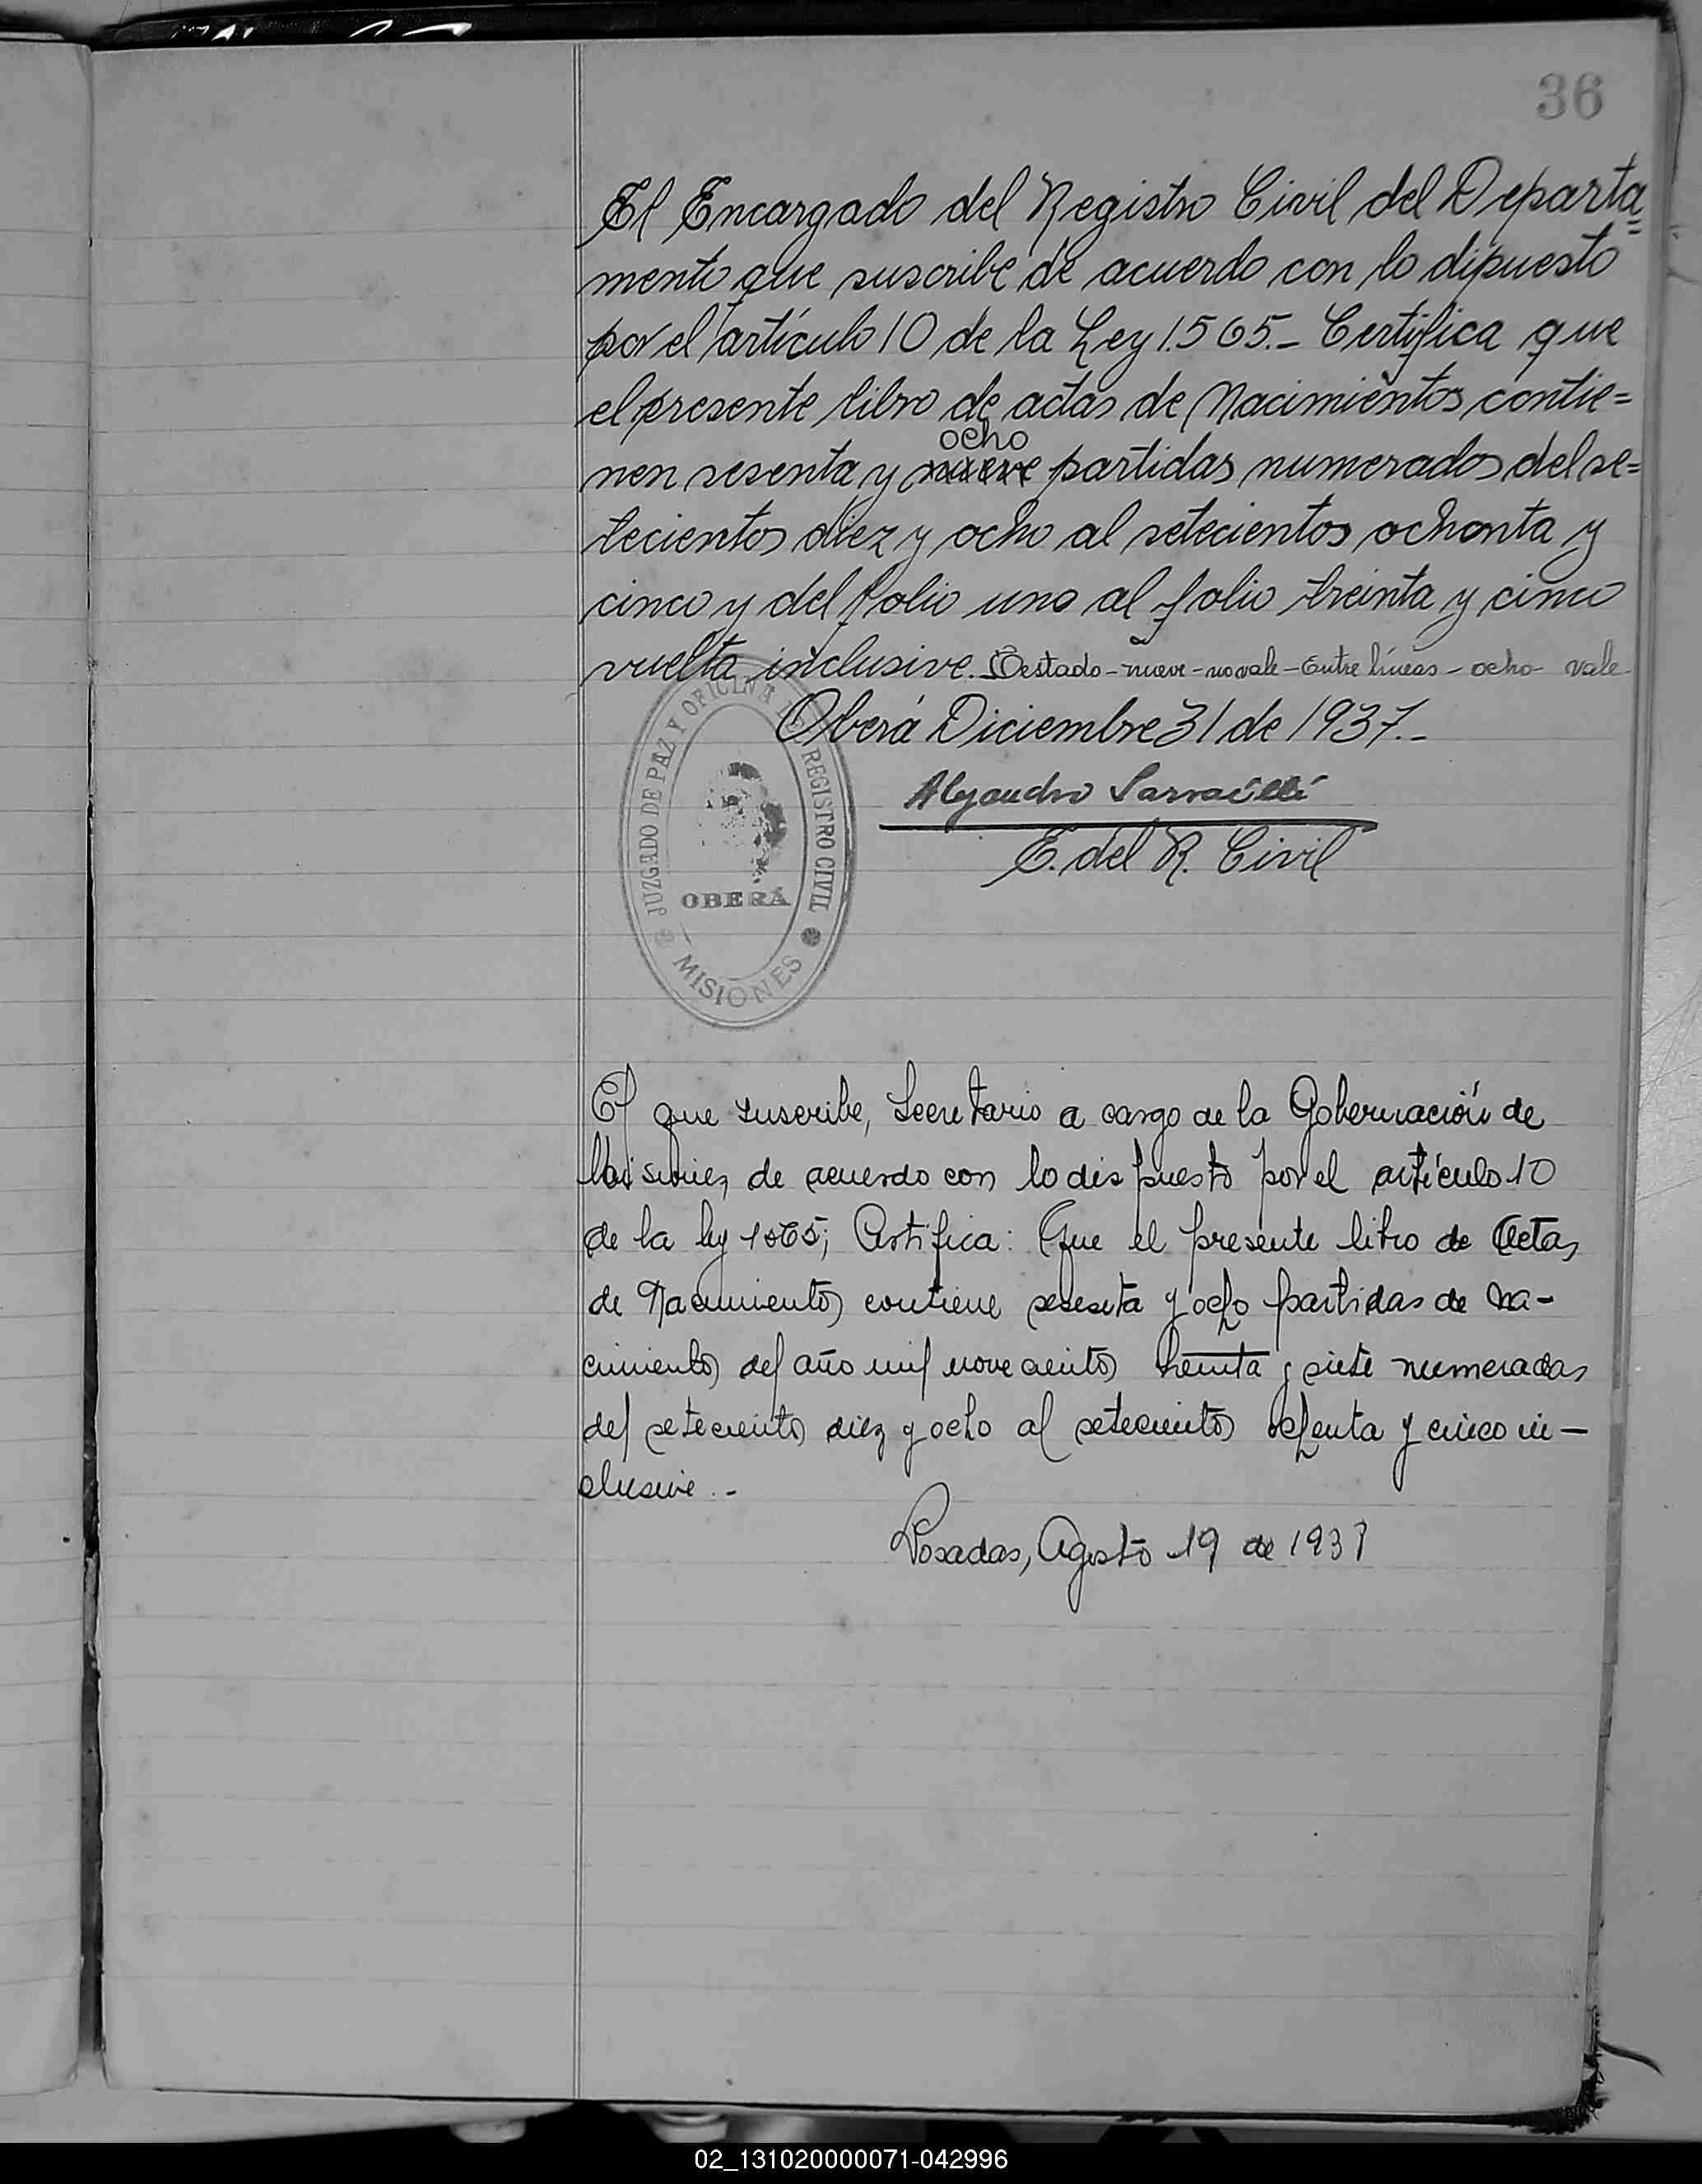 36
El Encargado del Registro Civil del Departa=
mento que suscribe de acuerdo con lo dipuesto
por el artículo 10 de la Ley 1.565.- Certifica que
el presente libro de actas de Nacimientos contie=
ocho
nen sesenta y nueve partidas numerados del se=
tecientos diez y ocho al setecientos ochenta y
cinco y del folio uno al folio treinta y cinco
vuelta inclusive. Testado - nueve - no vale - Entre líneas - ocho - vale
Oberá Diciembre 31 de 1937.-
Alejandro
E. del R. Civil
JUZGADO DE PAZ Y OFICINA DE REGISTRO CIVIL
OBERÁ
MISIONES
El que suscribe, Secretario a cargo de la Gobernación de
Misiones, de acuerdo con lo dispuesto por el artículo 10
de la ley 1565; Certifica: Que el presente libro de Actas
de Nacimientos contiene sesenta y ocho partidas de na-
cimientos del año mil novecientos treinta y siete numeradas
del setecientos diez y ocho al setecientos ochenta y cinco in-
clusive.-
Posadas, Agosto 19 de 193
02_131020000071-042996